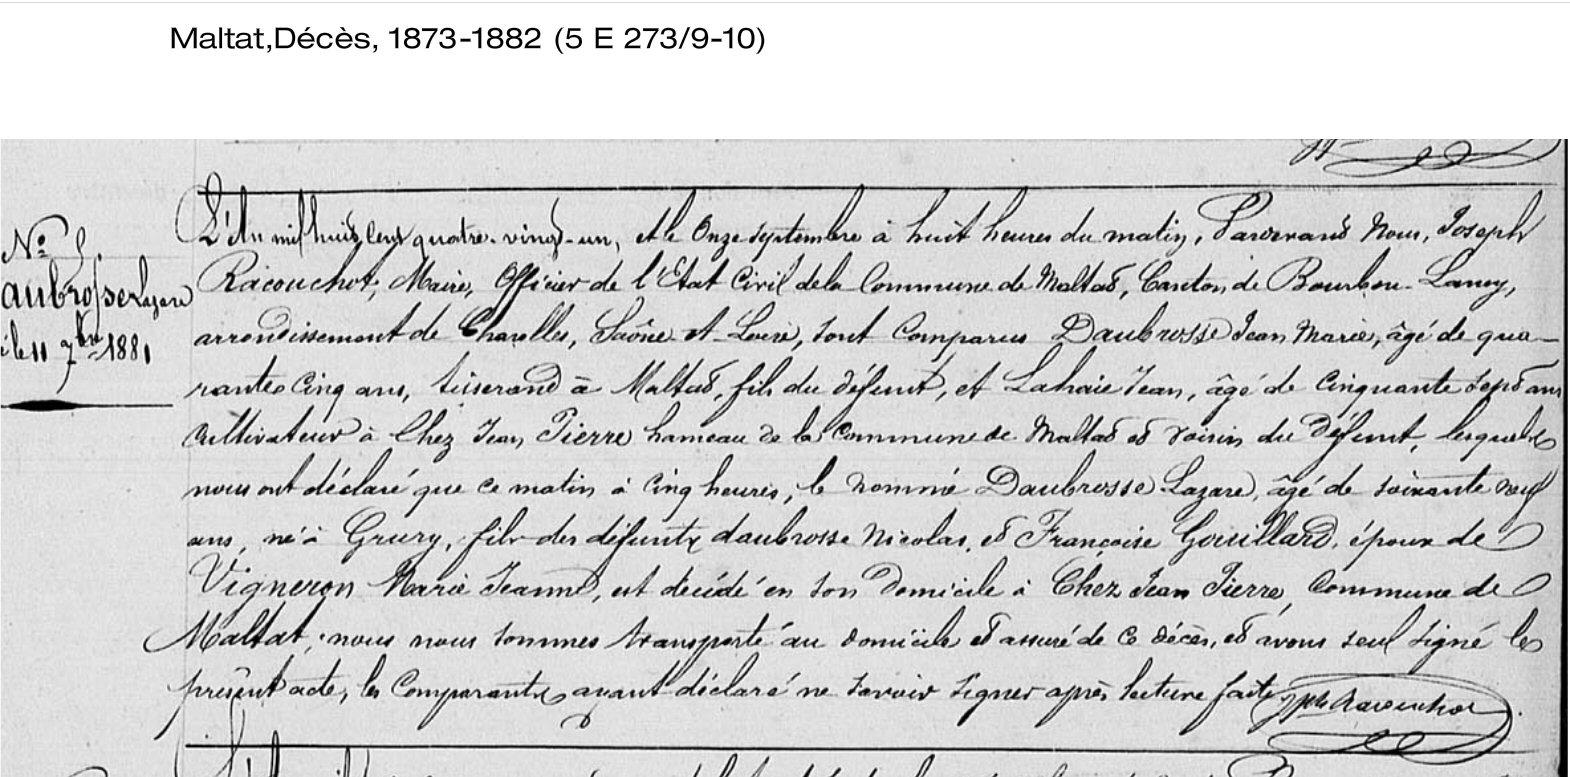 Maltat,Décès, 1873-1882 (5 E 273/9-10)
N°
aubrosse Lazare
le 11 7bre 1881
L'An mil huit cent quatre-vingt-un, et le Onze septembre à huit heures du matin, Pardevant Nous, Joseph
Racouchot, Maire, Officier de l'Etat Civil de la Commune de Maltat, Canton de Bourbon-Lancy,
arrondissement de Charolles, Saône et Loire, sont Comparus Daubrosse Jean Marie, âgé de qua-
rante Cinq ans, tisserand à Maltat, fils du défunt, et Lahaie Jean, âgé de Cinquante sept ans
cultivateur à Chez Jean Pierre hameau de la Commune de Maltat et voisin du défunt, lesquels
nous ont déclaré que ce matin à Cinq heures, le nommé Daubrosse Lazare, âgé de soixante neuf
ans, né à Grury, fils des défunts daubrosse Nicolas, et Françoise Gouillard, époux de
Vigneron Marie Jeanne, est décédé en son Domicile à Chez Jean Pierre, Commune de
Maltat; nous nous sommes transporté au domicile et assuré de ce décès, et avons seul signé le
présent acte, les Comparants ayant déclaré ne savoir signer après lecture faite. Jph Racouchot